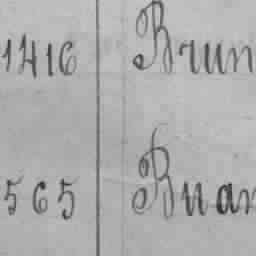 1416 Brun
565 Buan